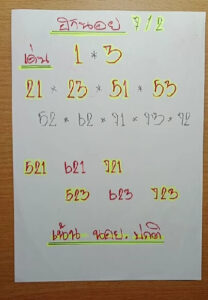 ฮานอย 7/1/2
เด่น 1 * 3
21 * 23 * 51 * 53
52 * 62 * 71 * 73 * 72
521 621 721
523 623 723
เน้น นอย. ปกติ